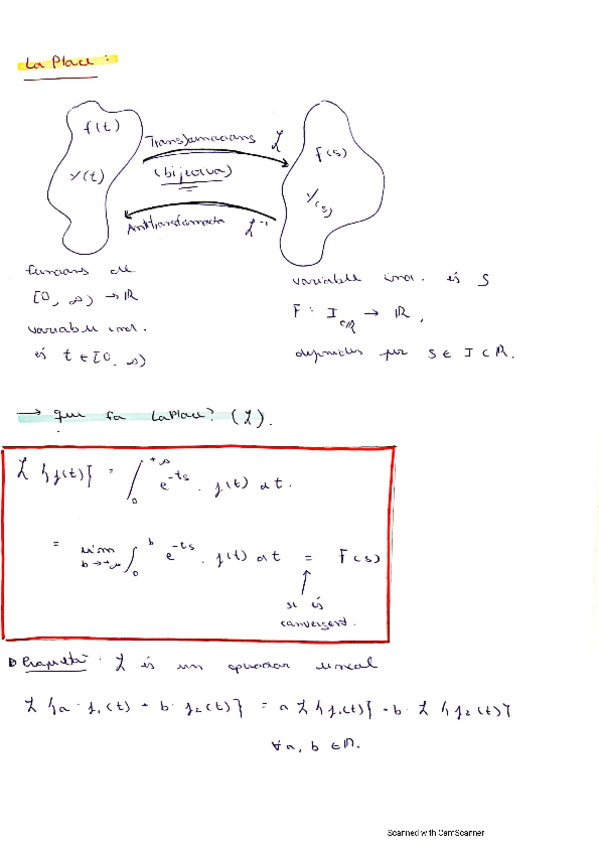 La Place :
f(t)
y(t)
Transformacions ℒ
(bijectiva)
Antitransformada ℒ⁻¹
F(s)
Y(s)
funcions de
[0, ∞) → ℝ
variable ind.
és t ∈ [0, ∞)
variable ind. és S
F : I ⊂ℝ → ℝ,
definides per S ∈ I ⊂ ℝ.
→ que fa LaPlace? (ℒ).
ℒ {f(t)} = ∫₀^{+∞} e^{-ts} · f(t) dt.
= lim_{b→+∞} ∫₀^b e^{-ts} · f(t) dt = F(s)
si és
convergent.
Propietat : ℒ és un operador lineal
ℒ {a · f₁(t) + b · f₂(t)} = a ℒ {f₁(t)} + b · ℒ {f₂(t)}
∀ a, b ∈ ℝ.
Scanned with CamScanner